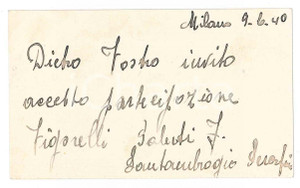 Milano 9-6-40
Dietro Vostro invito
accetto partecipazione
Vigorelli Saluti F.
Santambrogio